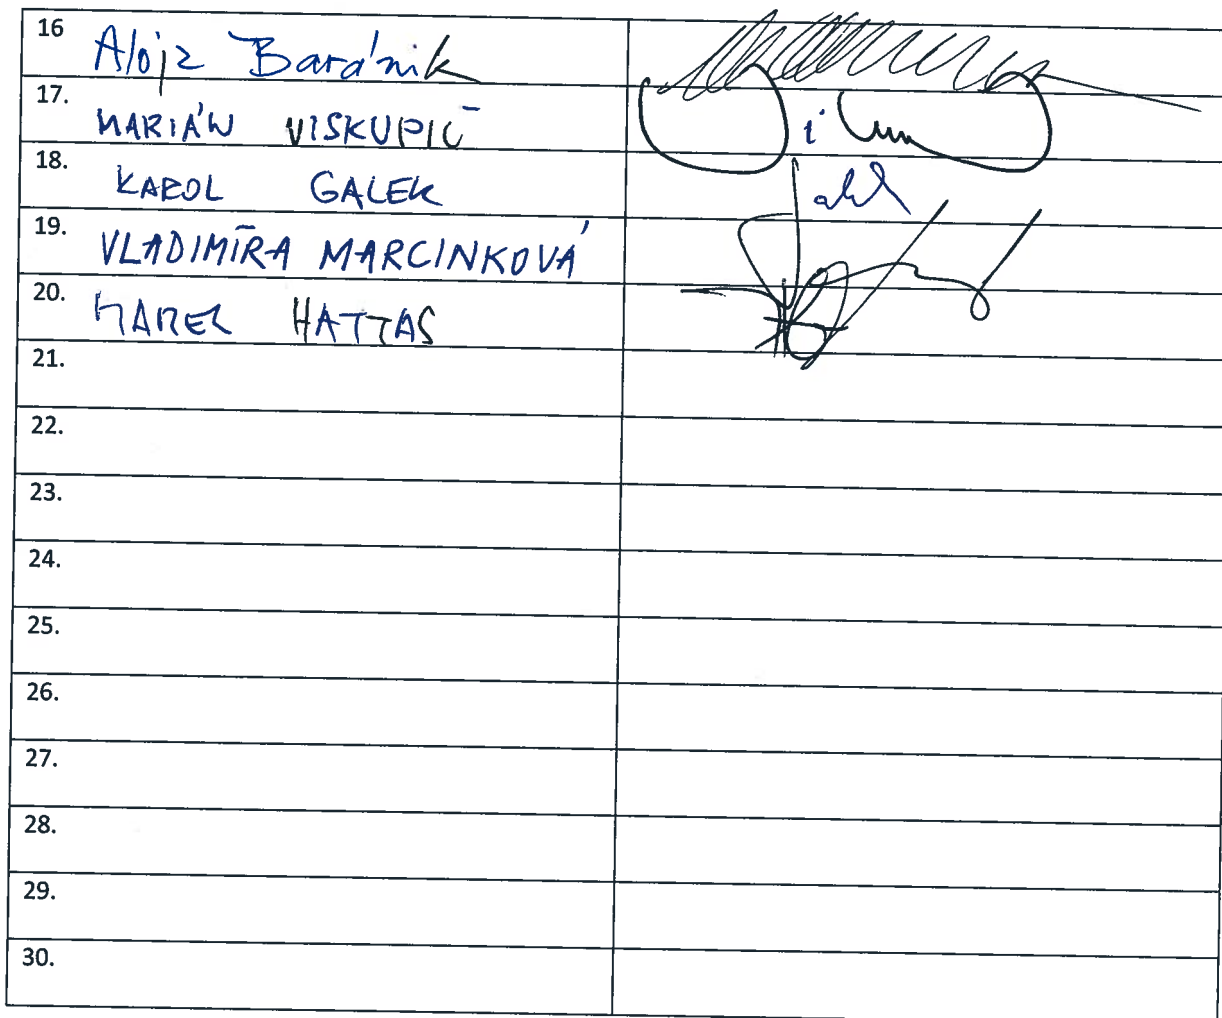 16 Alojz Baránik
17. MARIÁN VISKUPIČ
18. KAROL GALEK
19. VLADIMÍRA MARCINKOVÁ
20. KAREL HATTAS
21.
22.
23.
24.
25.
26.
27.
28.
29.
30.